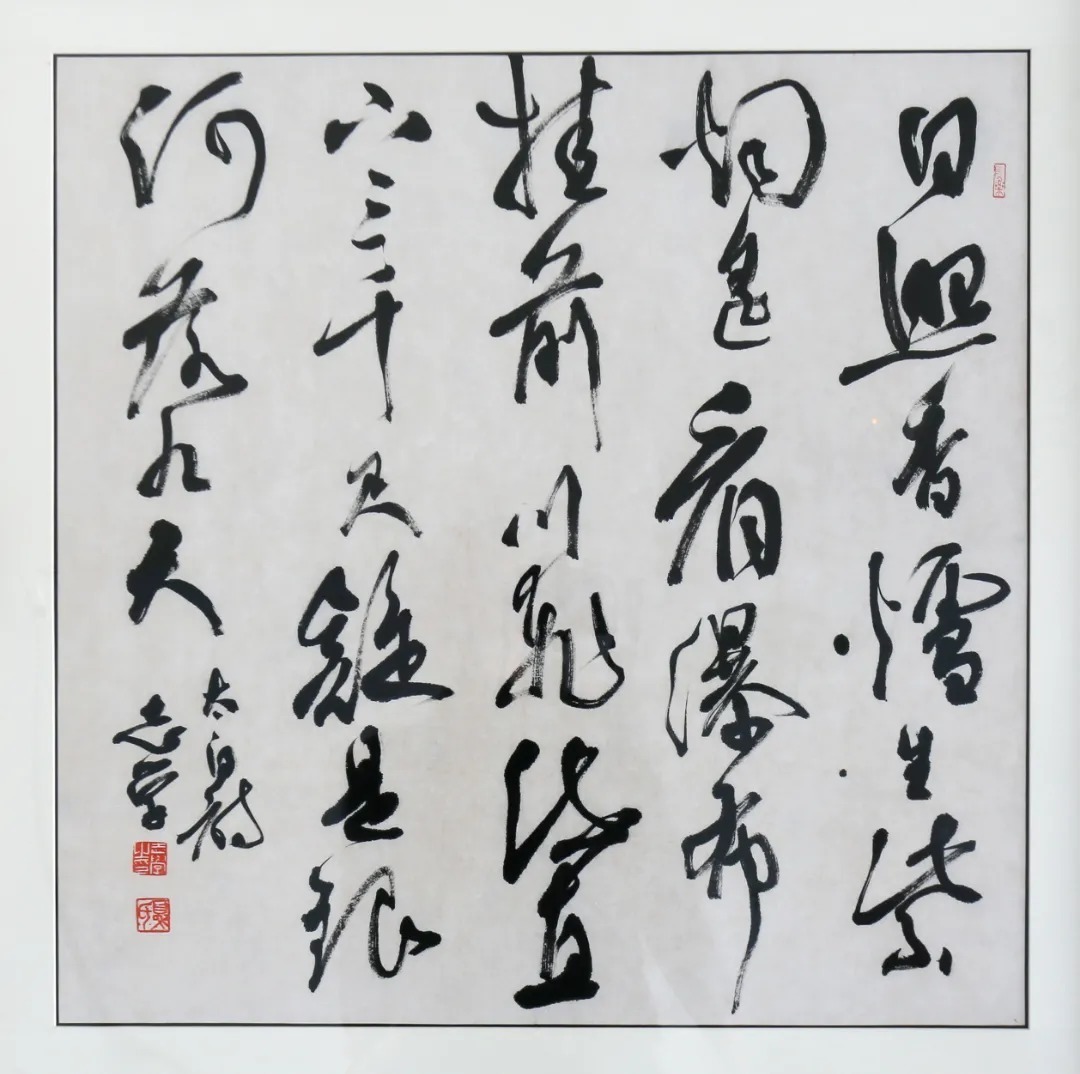 日照香爐生紫
烟遥看瀑布
挂前川飛流直
下三千尺疑是銀
河落九天
太白詩
志学